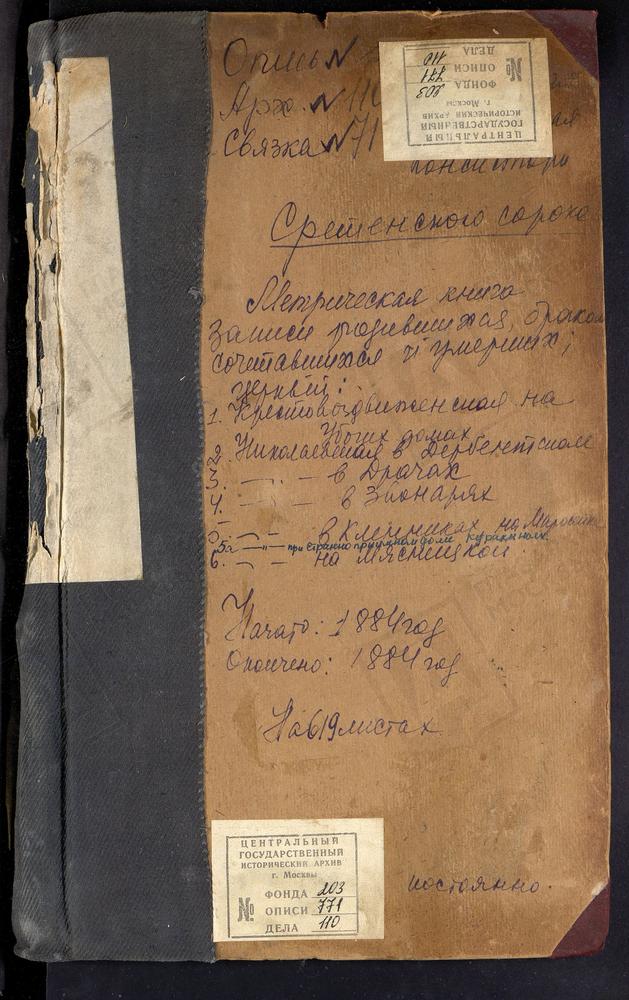 Опись №
Арх. № 110
Связка № 71
ЦЕНТРАЛЬНЫЙ
ГОСУДАРСТВЕННЫЙ
ИСТОРИЧЕСКИЙ АРХИВ
г. Москвы
ФОНДА 203
№ ОПИСИ 771
ДЕЛА 110
Сретенского сорока
Метрическая книга
Записи родившихся, браком
сочетавшихся и умерших;
церквей:
1. Крестовоздвиженская на
Убогих домах
2. Николаевская в Дербентском
3. — " — в Драчах
4. — " — в Звонарях
5. — " — в Клённиках на Маросейке
5а — " — при странноприимном доме Куракиных
6. — " — на Мясницкой.
Начато: 1884 год
Окончено: 1884 год
На 619 листах
ЦЕНТРАЛЬНЫЙ
ГОСУДАРСТВЕННЫЙ
ИСТОРИЧЕСКИЙ АРХИВ
г. Москвы
ФОНДА 203
№ ОПИСИ 771
ДЕЛА 110
постоянно.